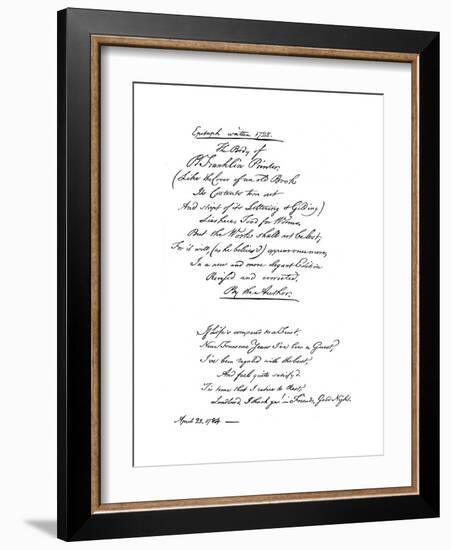 Epitaph written 1728.
The Body of
B Franklin Printer,
(Like the Cover of an old Book
Its Contents torn out
And stript of its Lettering & Gilding)
Lies here, Food for Worms.
But the Work shall not be lost;
For it will, (as he believ'd) appear once more,
In a new and more elegant Edition
Revised and corrected,
By the Author.
If Life's compared to a Feast,
Near Fourscore Years I've been a Guest,
I've been regaled with the best,
And feel quite satisfy'd.
'Tis time that I retire to Rest;
Landlord, I thank ye! Friends, Good Night.
April 22, 1784